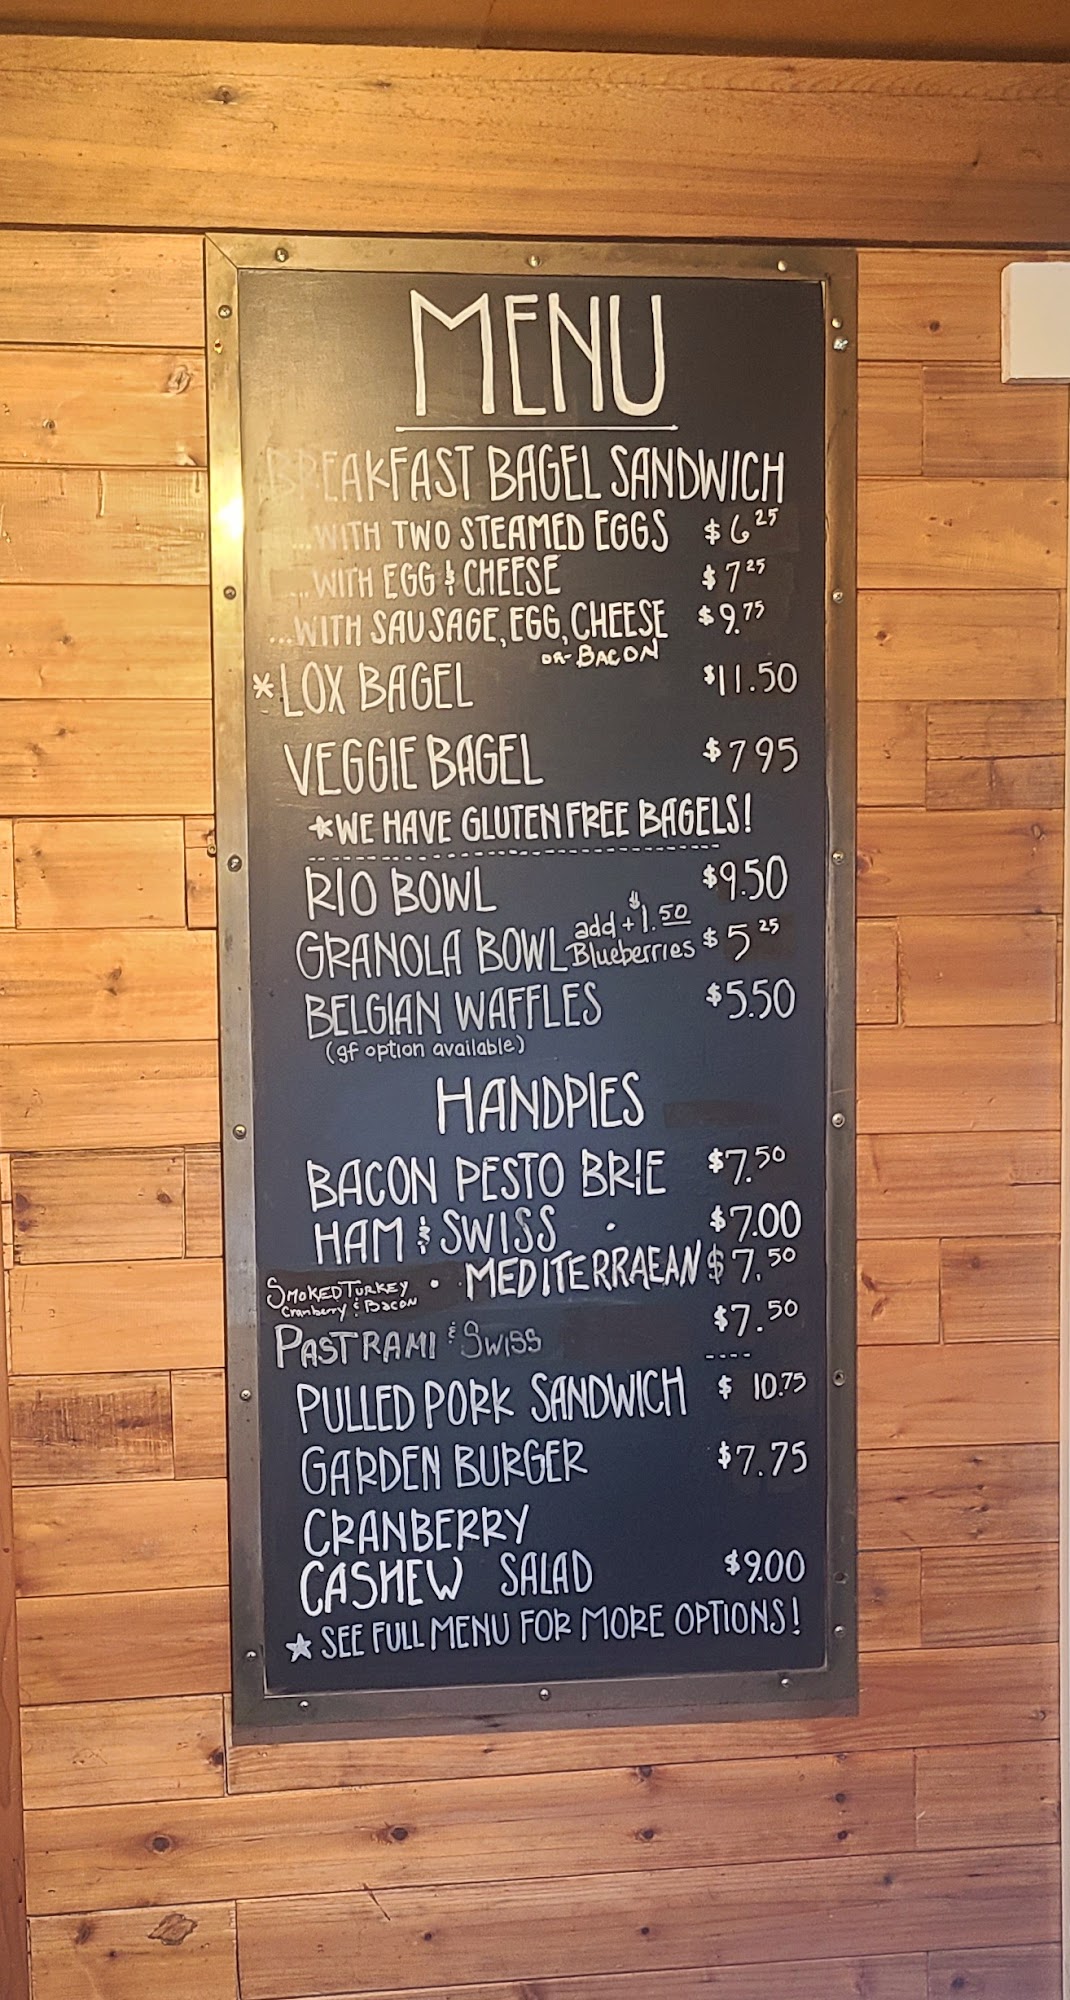 MENU
BREAKFAST BAGEL SANDWICH
...WITH TWO STEAMED EGGS $6 25
...WITH EGG & CHEESE $7 25
...WITH SAUSAGE, EGG, CHEESE $9.75
OR- BACON
*LOX BAGEL $11.50
VEGGIE BAGEL $7 95
*WE HAVE GLUTEN FREE BAGELS!
RIO BOWL $9.50
GRANOLA BOWL add + $1.50 Blueberries $5 25
BELGIAN WAFFLES $5.50
(gf option available)
HANDPIES
BACON PESTO BRIE $7.50
HAM & SWISS . $7.00
SMOKED TURKEY Cranberry & Bacon • MEDITERRAEAN $7.50
PASTRAMI & SWISS $7.50
PULLED PORK SANDWICH $ 10.75
GARDEN BURGER $7.75
CRANBERRY
CASHEW SALAD $9.00
★ SEE FULL MENU FOR MORE OPTIONS!